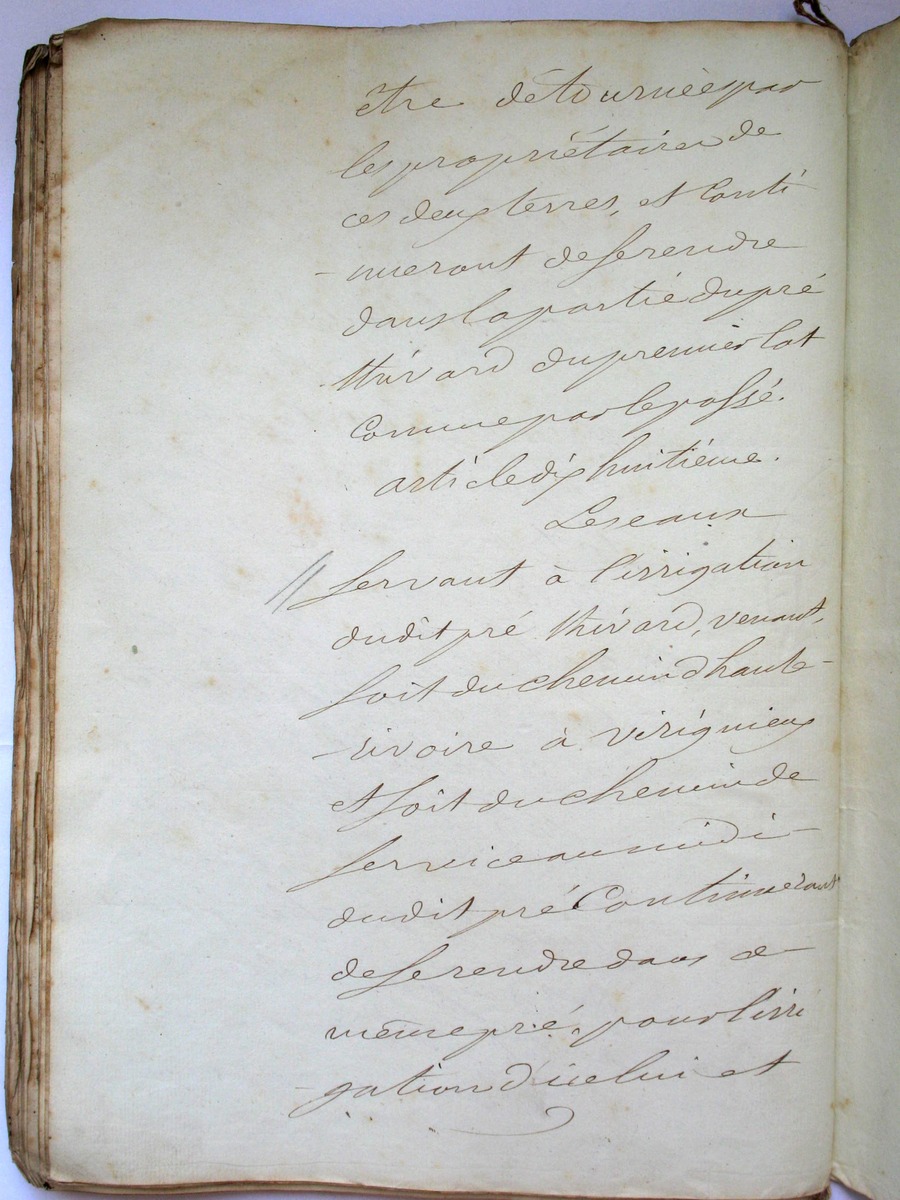 être détournées par
les propriétaires de
ces deux terres, et conti
-nueront de se rendre
dans la partie du pré
thivard du premier lot
comme par le passé.
article dix huitième.
Les eaux
servant à l'irrigation
dudit pré thivard, venant,
soit du chemin d'haute-
-rivoire à virignieux
et soit du chemin de
service au midi
dudit pré continueront
de se rendre dans ce
même pré, pour l'irri
-gation d'icelui et